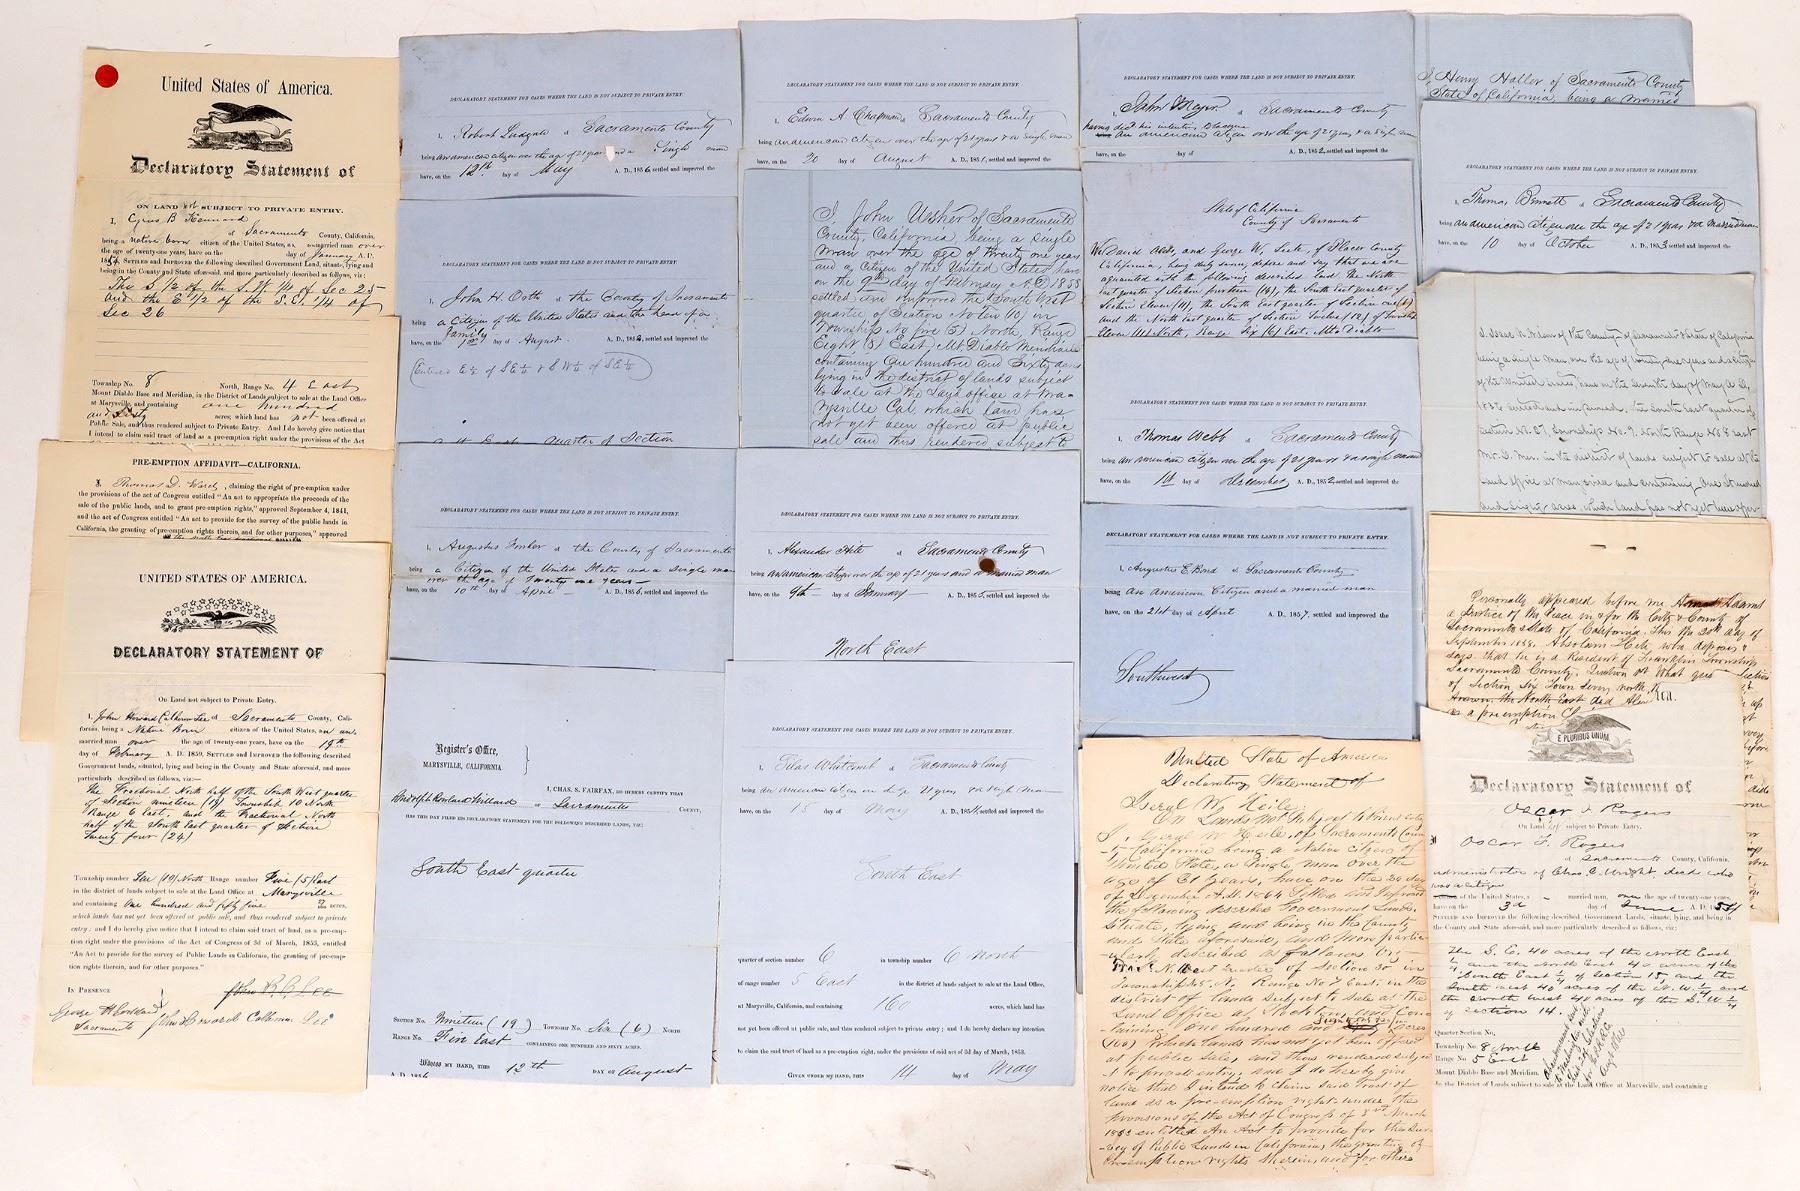 United States of America.
Declaratory Statement of
ON LAND not SUBJECT TO PRIVATE ENTRY.
I, Cyrus B Kennard
of Sacramento County, California,
being a native born citizen of the United States, an unmarried man over
the age of twenty-one years, have on the day of January A. D.
1854, SETTLED AND IMPROVED the following described Government Land, situate, lying and
being in the County and State aforesaid, and more particularly described as follows, viz:
The S 1/2 of the S.W. 1/4 of Sec 25
and the E 1/2 of the S.E. 1/4 of
Sec 26
Township No. 8 North, Range No. 4 East
Mount Diablo Base and Meridian, in the District of Lands subject to sale at the Land Office
at Marysville, and containing one hundred
and Sixty acres; which land has not been offered at
Public Sale, and thus rendered subject to Private Entry. And I do hereby give notice that
I intend to claim said tract of land as a pre-emption right under the provisions of the Act
PRE-EMPTION AFFIDAVIT—CALIFORNIA.
I, Thomas D. Ward, claiming the right of pre-emption under
the provisions of the act of Congress entitled "An act to appropriate the proceeds of the
sale of the public lands, and to grant pre-emption rights," approved September 4, 1841,
and the act of Congress entitled "An act to provide for the survey of the public lands in
California, the granting of pre-emption rights therein, and for other purposes," approved
UNITED STATES OF AMERICA.
DECLARATORY STATEMENT OF
On Land not subject to Private Entry.
I, John Howard Calhoun Lee of Sacramento County, Cali-
fornia, being a Native Born citizen of the United States, an un-
married man over the age of twenty-one years, have on the 19th
day of February A. D. 1859, SETTLED AND IMPROVED the following described
Government lands, situated, lying and being in the County and State aforesaid, and more
particularly described as follows, viz:—
The Fractional North half of the South West quarter
of Section nineteen (19) Township 10 North
Range 6 East, and the Fractional North
half of the South East quarter of Section
Twenty four (24)
Township number Ten (10) North Range number Five (5) East
in the district of lands subject to sale at the Land Office at Marysville
and containing One hundred and fifty five acres,
which lands has not yet been offered at public sale, and thus rendered subject to private
entry; and I do hereby give notice that I intend to claim said tract of land, as a pre-emp-
tion right under the provisions of the Act of Congress of 3d of March, 1853, entitled
"An Act to provide for the survey of Public Lands in California, the granting of pre-emp-
tion rights therein, and for other purposes."
IN PRESENCE
John B. C. Lee
George H Goddard
Sacramento John Howard Calhoun Lee
DECLARATORY STATEMENT FOR CASES WHERE THE LAND IS NOT SUBJECT TO PRIVATE ENTRY.
I, Robert Ludgate of Sacramento County
being an american citizen over the age of 21 years and a Single man
have, on the 12th day of May A. D., 1856, settled and improved the
DECLARATORY STATEMENT FOR CASES WHERE THE LAND IS NOT SUBJECT TO PRIVATE ENTRY.
I, John H. Orth of the County of Sacramento
being a Citizen of the United States and the head of a
family
have, on the 1st day of August A. D., 1852, settled and improved the
(Enters E ½ of SE ¼ & S W ¼ of SE ¼)
East quarter of Section
DECLARATORY STATEMENT FOR CASES WHERE THE LAND IS NOT SUBJECT TO PRIVATE ENTRY.
I, Augustus of the County of Sacramento
being a Citizen of the United States and a Single man
over the age of Twenty one years—
have, on the 10th day of April A. D., 1856, settled and improved the
Register's Office,
MARYSVILLE, CALIFORNIA.
I, CHAS. S. FAIRFAX, DO HEREBY CERTIFY THAT
Rudolph Rowland Millard OF Sacramento COUNTY,
HAS THIS DAY FILED HIS DECLARATORY STATEMENT FOR THE FOLLOWING DESCRIBED LANDS, VIZ:
South East quarter
SECTION NO. Nineteen (19) TOWNSHIP NO. Six (6) NORTH
RANGE NO. Five East CONTAINING ONE HUNDRED AND SIXTY ACRES.
Witness MY HAND, THIS 12th DAY OF August
A. D. 1856
DECLARATORY STATEMENT FOR CASES WHERE THE LAND IS NOT SUBJECT TO PRIVATE ENTRY.
I, Edwin A Chapman of Sacramento County
being an american citizen over the age of 21 years & a Single man
have, on the 20 day of August A. D., 1851, settled and improved the
I John Usher of Sacramento
County, California, being a single
man over the age of twenty one years
and a Citizen of the United States have
on the 9th day of February A.D. 1855
settled and improved the South West
quarter of Section No ten (10) in
Township No five (5) North, Range
Eight (8) East, Mt Diablo Meridian
containing One hundred and Sixty acres
lying in the district of lands subject
to Sale at the Land office at Ma-
rysville Cal, which land has
not yet been offered at public
sale and thus rendered subject to
DECLARATORY STATEMENT FOR CASES WHERE THE LAND IS NOT SUBJECT TO PRIVATE ENTRY.
I, Alexander Hite of Sacramento County
being an american citizen over the age of 21 years and a married man
have, on the 9th day of January A. D., 1855, settled and improved the
North East
DECLARATORY STATEMENT FOR CASES WHERE THE LAND IS NOT SUBJECT TO PRIVATE ENTRY.
I, Silas Whitcomb of Sacramento County
being an american citizen
have, on the 15 day of May A. D., 1854, settled and improved the
South East
quarter of section number 6 in township number 6 North
of range number 5 East in the district of lands subject to sale at the Land Office,
at Marysville, California, and containing 160 acres, which land has
not yet been offered at public sale, and thus rendered subject to private entry; and I do hereby declare my intention
to claim the said tract of land as a pre-emption right, under the provisions of said act of 3d day of March, 1853.
GIVEN UNDER MY HAND, THIS 14 day of May
DECLARATORY STATEMENT FOR CASES WHERE THE LAND IS NOT SUBJECT TO PRIVATE ENTRY.
I, John Meyer of Sacramento County
having decl his intention to become
being an american citizen over the age of 21 years & a single man
have, on the day of A. D., 1852, settled and improved the
State of California
County of Sacramento
We David and George W. of Placer County
California, being duly sworn, depose and say that we are
aquainted with the following described land The North
East quarter of Section fourteen (14), the South East quarter of
Section Eleven (11), the South East quarter of Section one (1)
and the North East quarter of Section Twelve (12) of Township
Eleven (11) North, Range Six (6) East, Mt Diablo
DECLARATORY STATEMENT FOR CASES WHERE THE LAND IS NOT SUBJECT TO PRIVATE ENTRY.
I, Thomas Webb of Sacramento County
being an american citizen over the age of 21 years & a single man
have, on the 1st day of December A. D., 1852, settled and improved the
DECLARATORY STATEMENT FOR CASES WHERE THE LAND IS NOT SUBJECT TO PRIVATE ENTRY.
I, Augustus E. Bond of Sacramento County
being an American Citizen and a married man
have, on the 21st day of April A. D., 1857, settled and improved the
Southwest
United State of America
Declaratory Statement of
Iseral W. Heile.
On Lands not subject to Private Entry
I, Iseral W Heile, of Sacramento Coun-
ty California being a Native citizen of
United States, a Single man over the
age of 21 years, have on the 20 day
of December A.D. 1864 Settled and Improved
the following describe Government Lands.
Situate, lying and being in the County
and State aforesaid, and more partic-
ularly described as follows Viz—
The N. West quarter of Section 30 in
Township 5 N. Range No 7 East. in the
district of lands subject to Sale at the
Land Office at Stockton and Con-
taining One hundred and Sixty acres
(160) Which lands has not yet been offered
at public Sale, and thus rendered subject
to private entry, and I do hereby give
notice that I intend to claim said tract of
land as a pre-emption right under the
provisions of the Act of Congress of 3rd March
1853 entitled An Act to provide for the Sur-
vey of Public Lands in California, the granting of
Pre-emption rights therein, and for others
I, Henry Haller of Sacramento County
State of California, being a married
DECLARATORY STATEMENT FOR CASES WHERE THE LAND IS NOT SUBJECT TO PRIVATE ENTRY.
I, Thomas Bennett of Sacramento County
being an american citizen over the age of 21 years & a married man
have, on the 10 day of October A. D., 1853 settled and improved the
I, Isaac N. Wilson of the County of Sacramento & State of California
being a single man over the age of twenty one years and a citizen
of the United States, have on the seventh day of May A.D.
settled and improved, the South East quarter of
Section N. 27, Township No. 9. North Range No 8 East
Mt. D. Mer. in the district of lands subject to sale at the
Land office at Marysville and containing One Hundred
and Eighty acres, which land has not yet been offer-
Personally appeared before me Adams
a Justice of the Peace in & for the City & County of
Sacramento & State of California. This the 20th day of
September Absolam Hite who deposes &
says. that he is a Resident of Franklin Township
Sacramento County. Question at What
of Section Six Town Seven north,
the North East
as a preemption
E PLURIBUS UNUM.
Declaratory Statement of
Oscar F Rogers
On Land subject to Private Entry.
Oscar F. Rogers
of Sacramento County, California,
administrator of Chas C. Wright, decd who
was a citizen
of the United States, a – married man, over the age of twenty-one years,
have on the 3d day of June A. D. 1854
SETTLED AND IMPROVED the following described Government Lands, situate, lying and being in
the County and State aforesaid, and more particularly described as follows, viz:
The S. E. 40 acres of the North East
¼ and the North East 40 acres of the
South East ¼ of Section 15, and the
South west 40 acres of the N. W. ¼ and
the North west 40 acres of the S. W. ¼
of section 14.
Quarter Section No,
Township No. 8 North
Range No 5 East
Mount Diablo Base and Meridian.
In the District of Lands subject to sale at the Land Office at Marysville, and containing